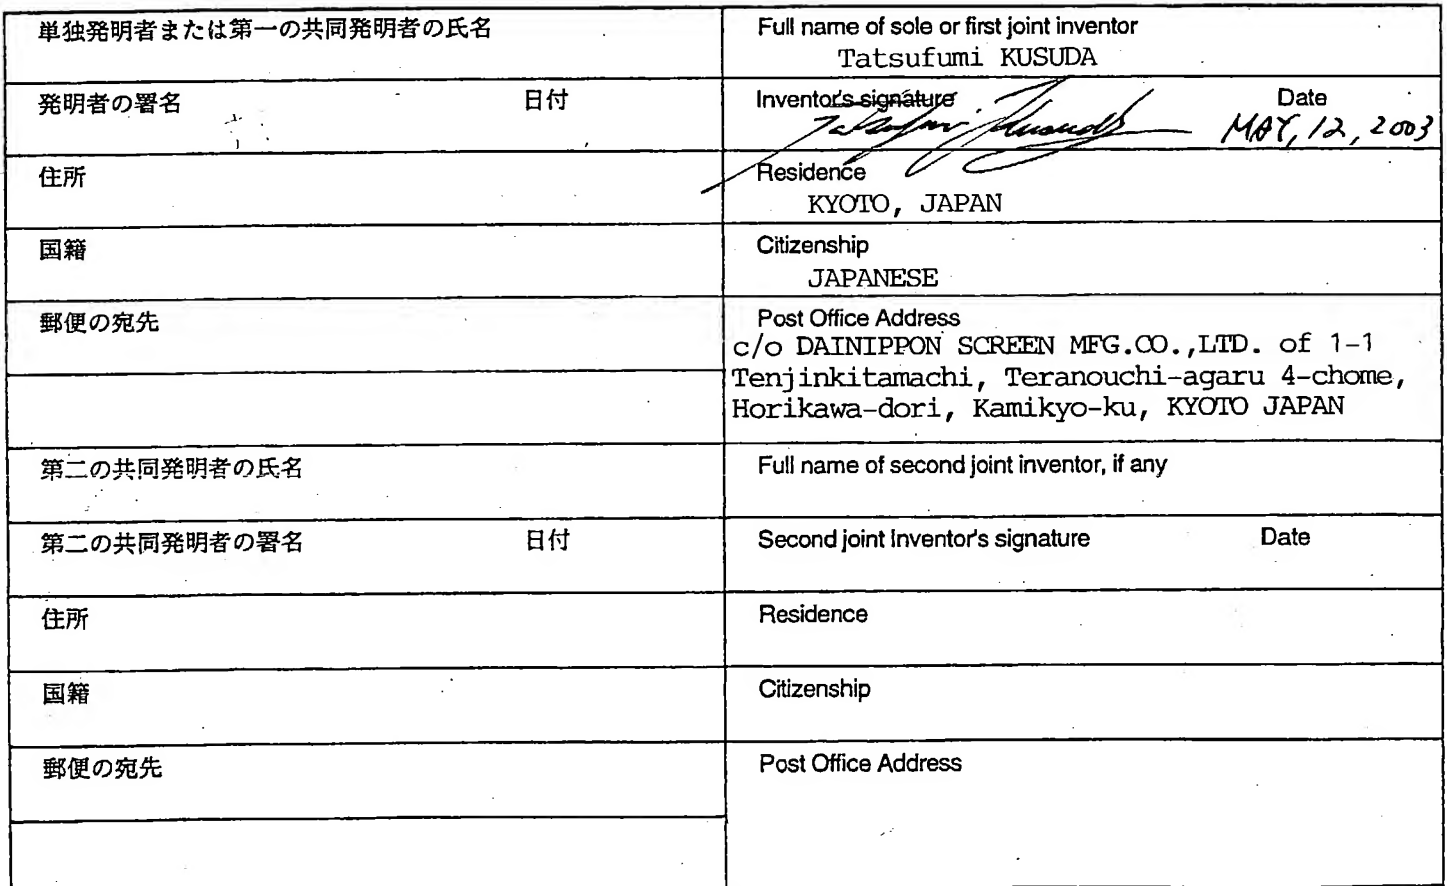 単独発明者または第一の共同発明者の氏名
Full name of sole or first joint inventor
Tatsufumi KUSUDA
発明者の署名 日付
Inventor's signature Date
Tatsufumi Kusuda MAY, 12, 2003
住所
Residence
KYOTO, JAPAN
国籍
Citizenship
JAPANESE
郵便の宛先
Post Office Address
c/o DAINIPPON SCREEN MFG.CO.,LTD. of 1-1
Tenjinkitamachi, Teranouchi-agaru 4-chome,
Horikawa-dori, Kamikyo-ku, KYOTO JAPAN
第二の共同発明者の氏名
Full name of second joint inventor, if any
第二の共同発明者の署名 日付
Second joint Inventor's signature Date
住所
Residence
国籍
Citizenship
郵便の宛先
Post Office Address